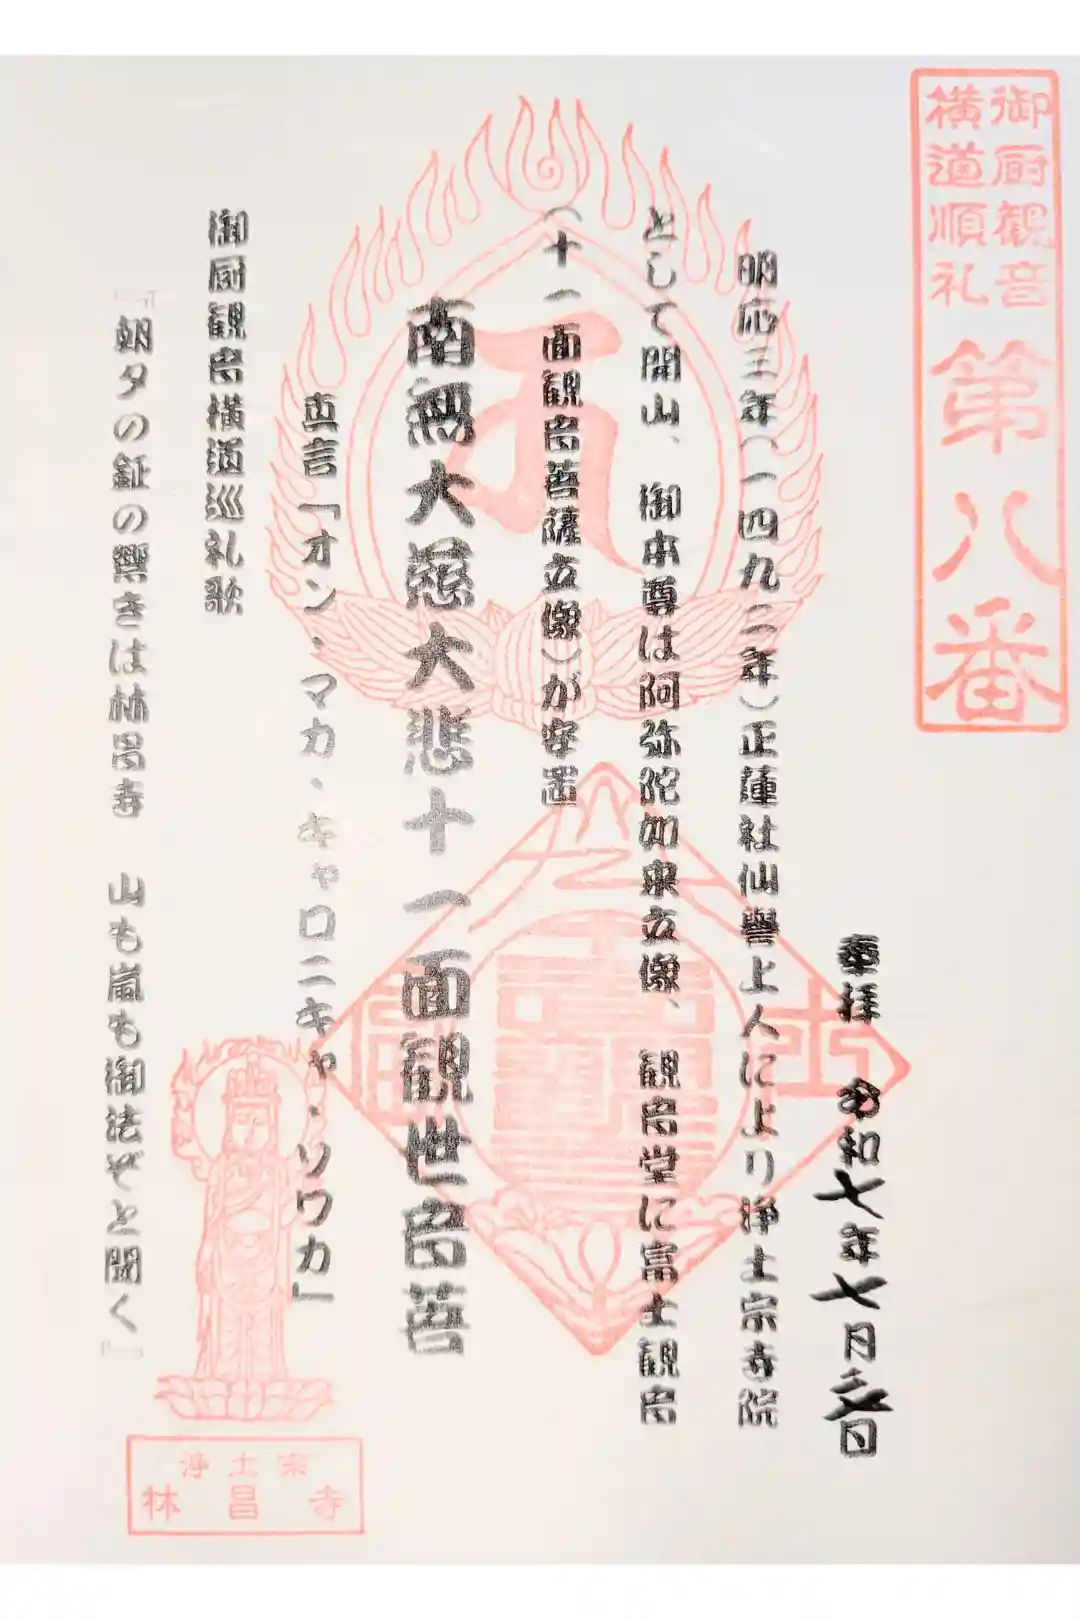 御厨観音
横道順礼
第八番
奉拝 令和七年七月
日
明応三年(一四九二年)正蓮社仙誉上人により浄土宗寺院
として開山、 御本尊は阿弥陀如来立像、 観音堂に富士観音
(十一面観音菩薩立像)が安置
南無大慈大悲十一面観世音菩
真言「オン・マカ・キャロニキャ・ソワカ」
御厨観音横道巡礼歌
『朝夕の鉦の響きは林昌寺 山も嵐も御法ぞと聞く』
浄土宗
林昌寺